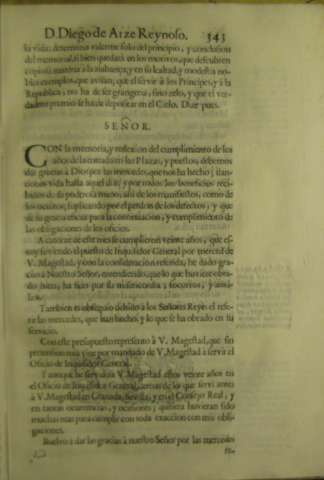 D. Diego de Arze Reynoso. 343
su vida: determina valerme solo del principio, y conclusion
del memorial, si bien quedará en los motivos, que descubren
copiosa materia à la alabança; y en su lealtad, y modestia no-
bles exemplos, que avisan, que el servir à los Principes, y à la
Republica, no ha de ser grangeria, sino zelo, y que el ver-
dadero premio se ha de depositar en el Cielo. Dize pues.
SEÑOR.
CON la memoria, y reflexion del cumplimiento de los
años de la entrada en las Plazas, y puestos, debemos
dar gracias à Dios por las mercedes, que nos ha hecho,
vida hasta aquel dia; y por todos los beneficios reci-
bidos de su poderosa mano, assi de los manifiestos, como de
los ocultos; suplicando por el perdon de los defectos, y que
dè su gracia eficaz para la continuacion, y cumplimiento de
las obligaciones de los oficios.
A catorze de este mes se cumplieron veinte años, que es-
toy sirviendo el puesto de Inquisidor General por merced de
V. Magestad, y con la consideracion referida, he dado gra-
cias à Nuestro Señor, entendiendo, que lo que huviere obra-
do bien, ha sido por su misericordia, y socorros, y
Tambien es obsequio debido à los Señores Reyes el refe-
rir las mercedes, que han hecho, y lo que se ha obrado en su
servicio.
Con este presupuesto represento à V. Magestad, que sin
pretension mia, vine por mandado de V. Magestad à servir el
Oficio de Inquisidor General.
Y aunque he servido à V. Magestad estos veinte años en
el Oficio de Inquisidor General, demas de los que servi antes
à V. Magestad en Granada, Sevilla, y en el Consejo Real, y
en tantas ocurrencias, y ocasiones; quisiera huvieran sido
muchas mas para cumplir con toda exaccion con mis obli-
gaciones.
Buelvo à dar las gracias à nuestro Señor por las mercedes